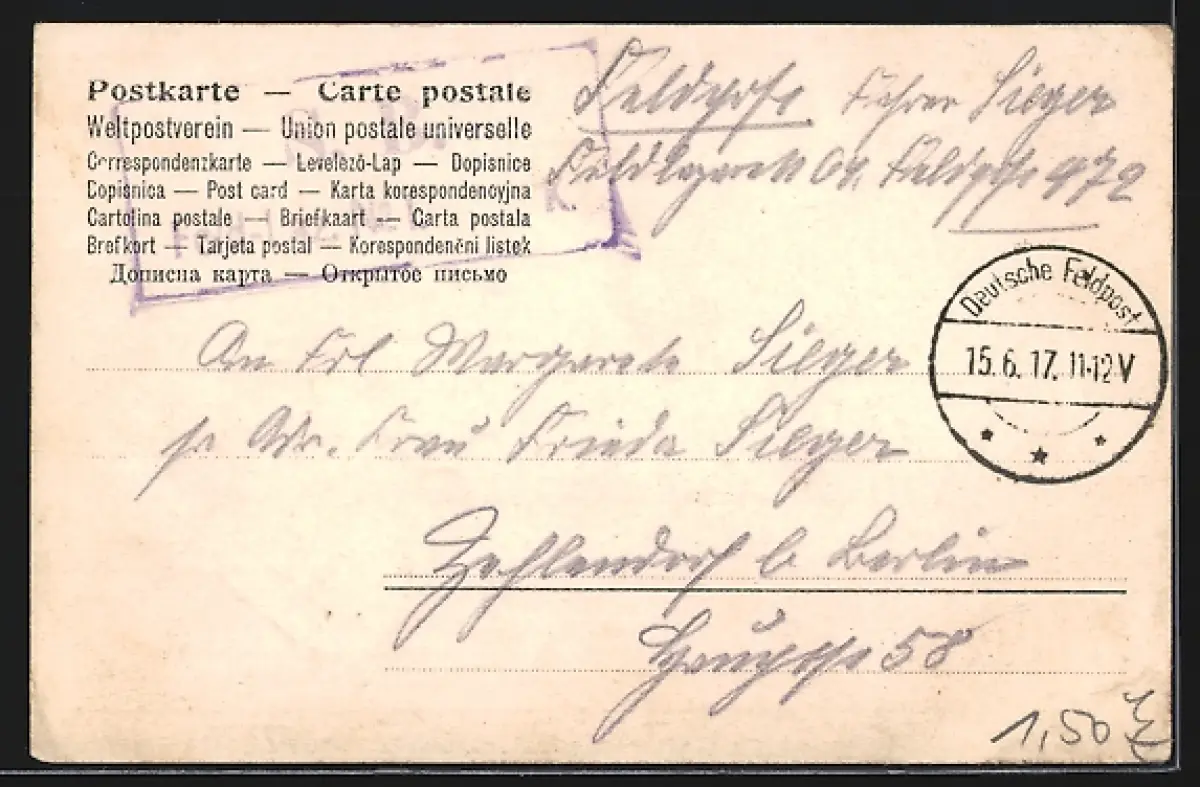 Postkarte — Carte postale
Weltpostverein — Union postale universelle
Correspondenzkarte — Levelező-Lap — Dopisnice
Dopisnica — Post card — Karta korespondencyjna
Cartolina postale — Briefkaart — Carta postala
Brefkort — Tarjeta postal — Korespondenční listek
Дописна карта — Открытое письмо
S. B.
Feldpost Fahrer Sieger
Feldlazarett 64. Feldpst 972
Deutsche Feldpost
15.6.17. 11-12V
An Frl Margarete Sieger
p Adr. Frau Frieda Sieger
Zehlendorf b Berlin
58
1,50